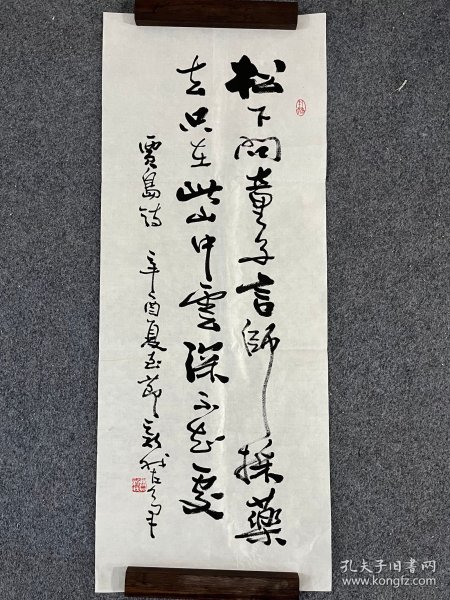 松下問童子言師採藥
去只在此山中雲深不知處
賈島詩 辛酉夏至節
孔夫子旧书网
www.kongfz.com